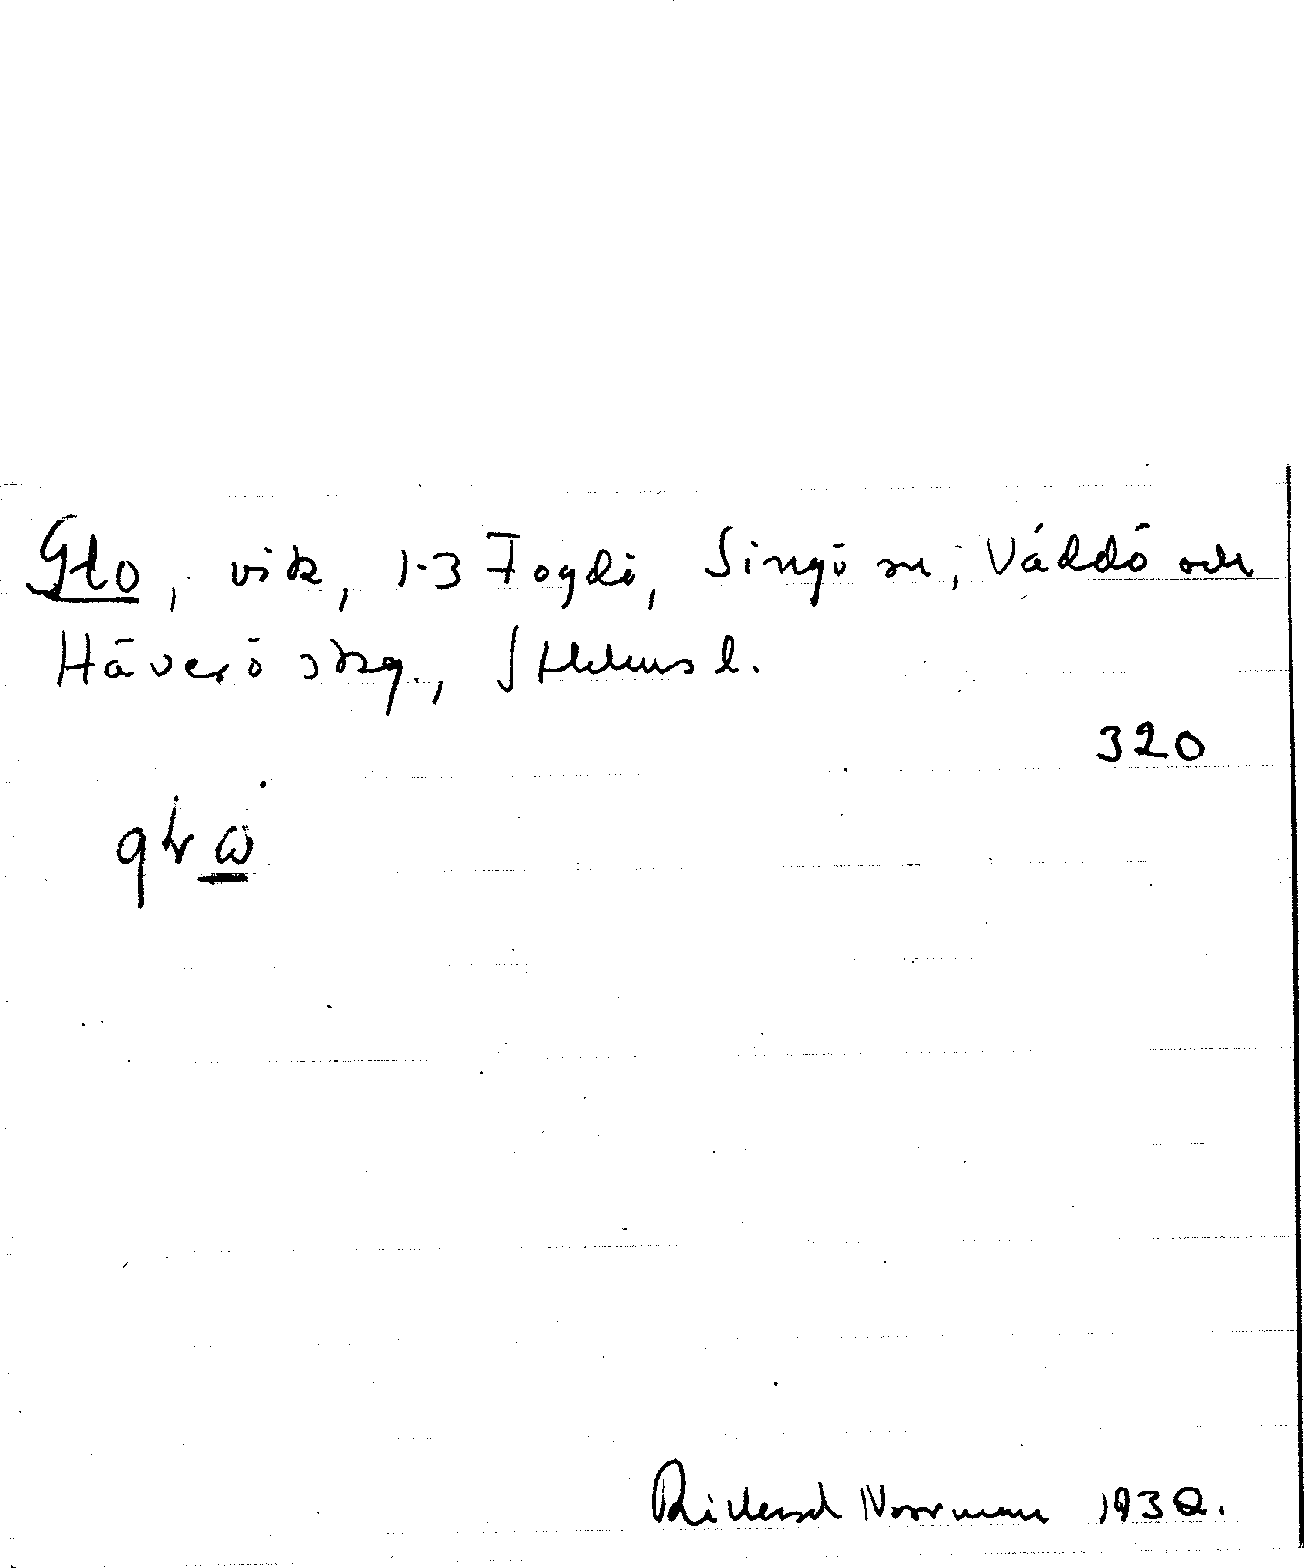 Glo, vik, 1-3 Fogdö, Singö sn, Väddö och
Häverö skg., Sthlms l.
320
Rickard Norrman 1932.